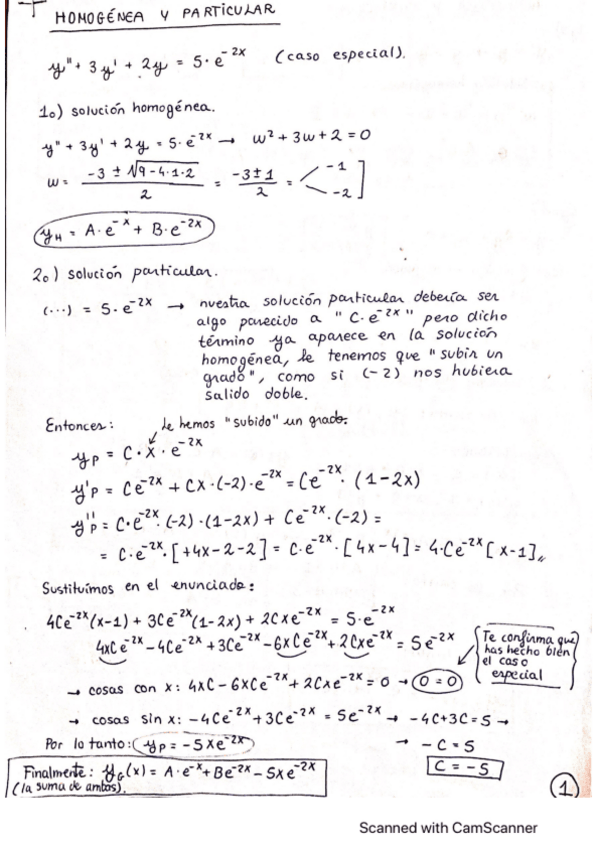 HOMOGÉNEA Y PARTICULAR
y'' + 3y' + 2y = 5·e^-2x (caso especial).
1o) solución homogénea.
y'' + 3y' + 2y = 5·e^-2x → w² + 3w + 2 = 0
w = (-3 ± √9-4·1·2) / 2 = (-3±1) / 2 = < -1 -2 ]
y_H = A·e^-x + B·e^-2x
2o) solución particular.
(...) = 5·e^-2x → nuestra solución particular debería ser
algo parecido a "C·e^-2x" pero dicho
término ya aparece en la solución
homogénea, le tenemos que "subir un
grado", como si (-2) nos hubiera
salido doble.
Entonces: Le hemos "subido" un grado.
y_P = C·x·e^-2x
y'_P = Ce^-2x + Cx·(-2)·e^-2x = Ce^-2x·(1-2x)
y''_P = C·e^-2x·(-2)·(1-2x) + Ce^-2x·(-2) =
= C·e^-2x·[+4x-2-2] = C·e^-2x·[4x-4] = 4·Ce^-2x[x-1]
Sustituimos en el enunciado:
4Ce^-2x(x-1) + 3Ce^-2x(1-2x) + 2Cxe^-2x = 5·e^-2x
4xCe^-2x - 4Ce^-2x + 3Ce^-2x - 6xCe^-2x + 2Cxe^-2x = 5e^-2x
Te confirma que
has hecho bien
el caso
especial
→ cosas con x: 4xC - 6xCe^-2x + 2Cxe^-2x = 0 → 0=0
→ cosas sin x: -4Ce^-2x + 3Ce^-2x = 5e^-2x → -4C+3C=5 →
Por lo tanto: y_P = -5xe^-2x → -C = 5
C = -5
Finalmente: y_G(x) = A·e^-x + Be^-2x - 5xe^-2x
(la suma de ambos).
1
Scanned with CamScanner